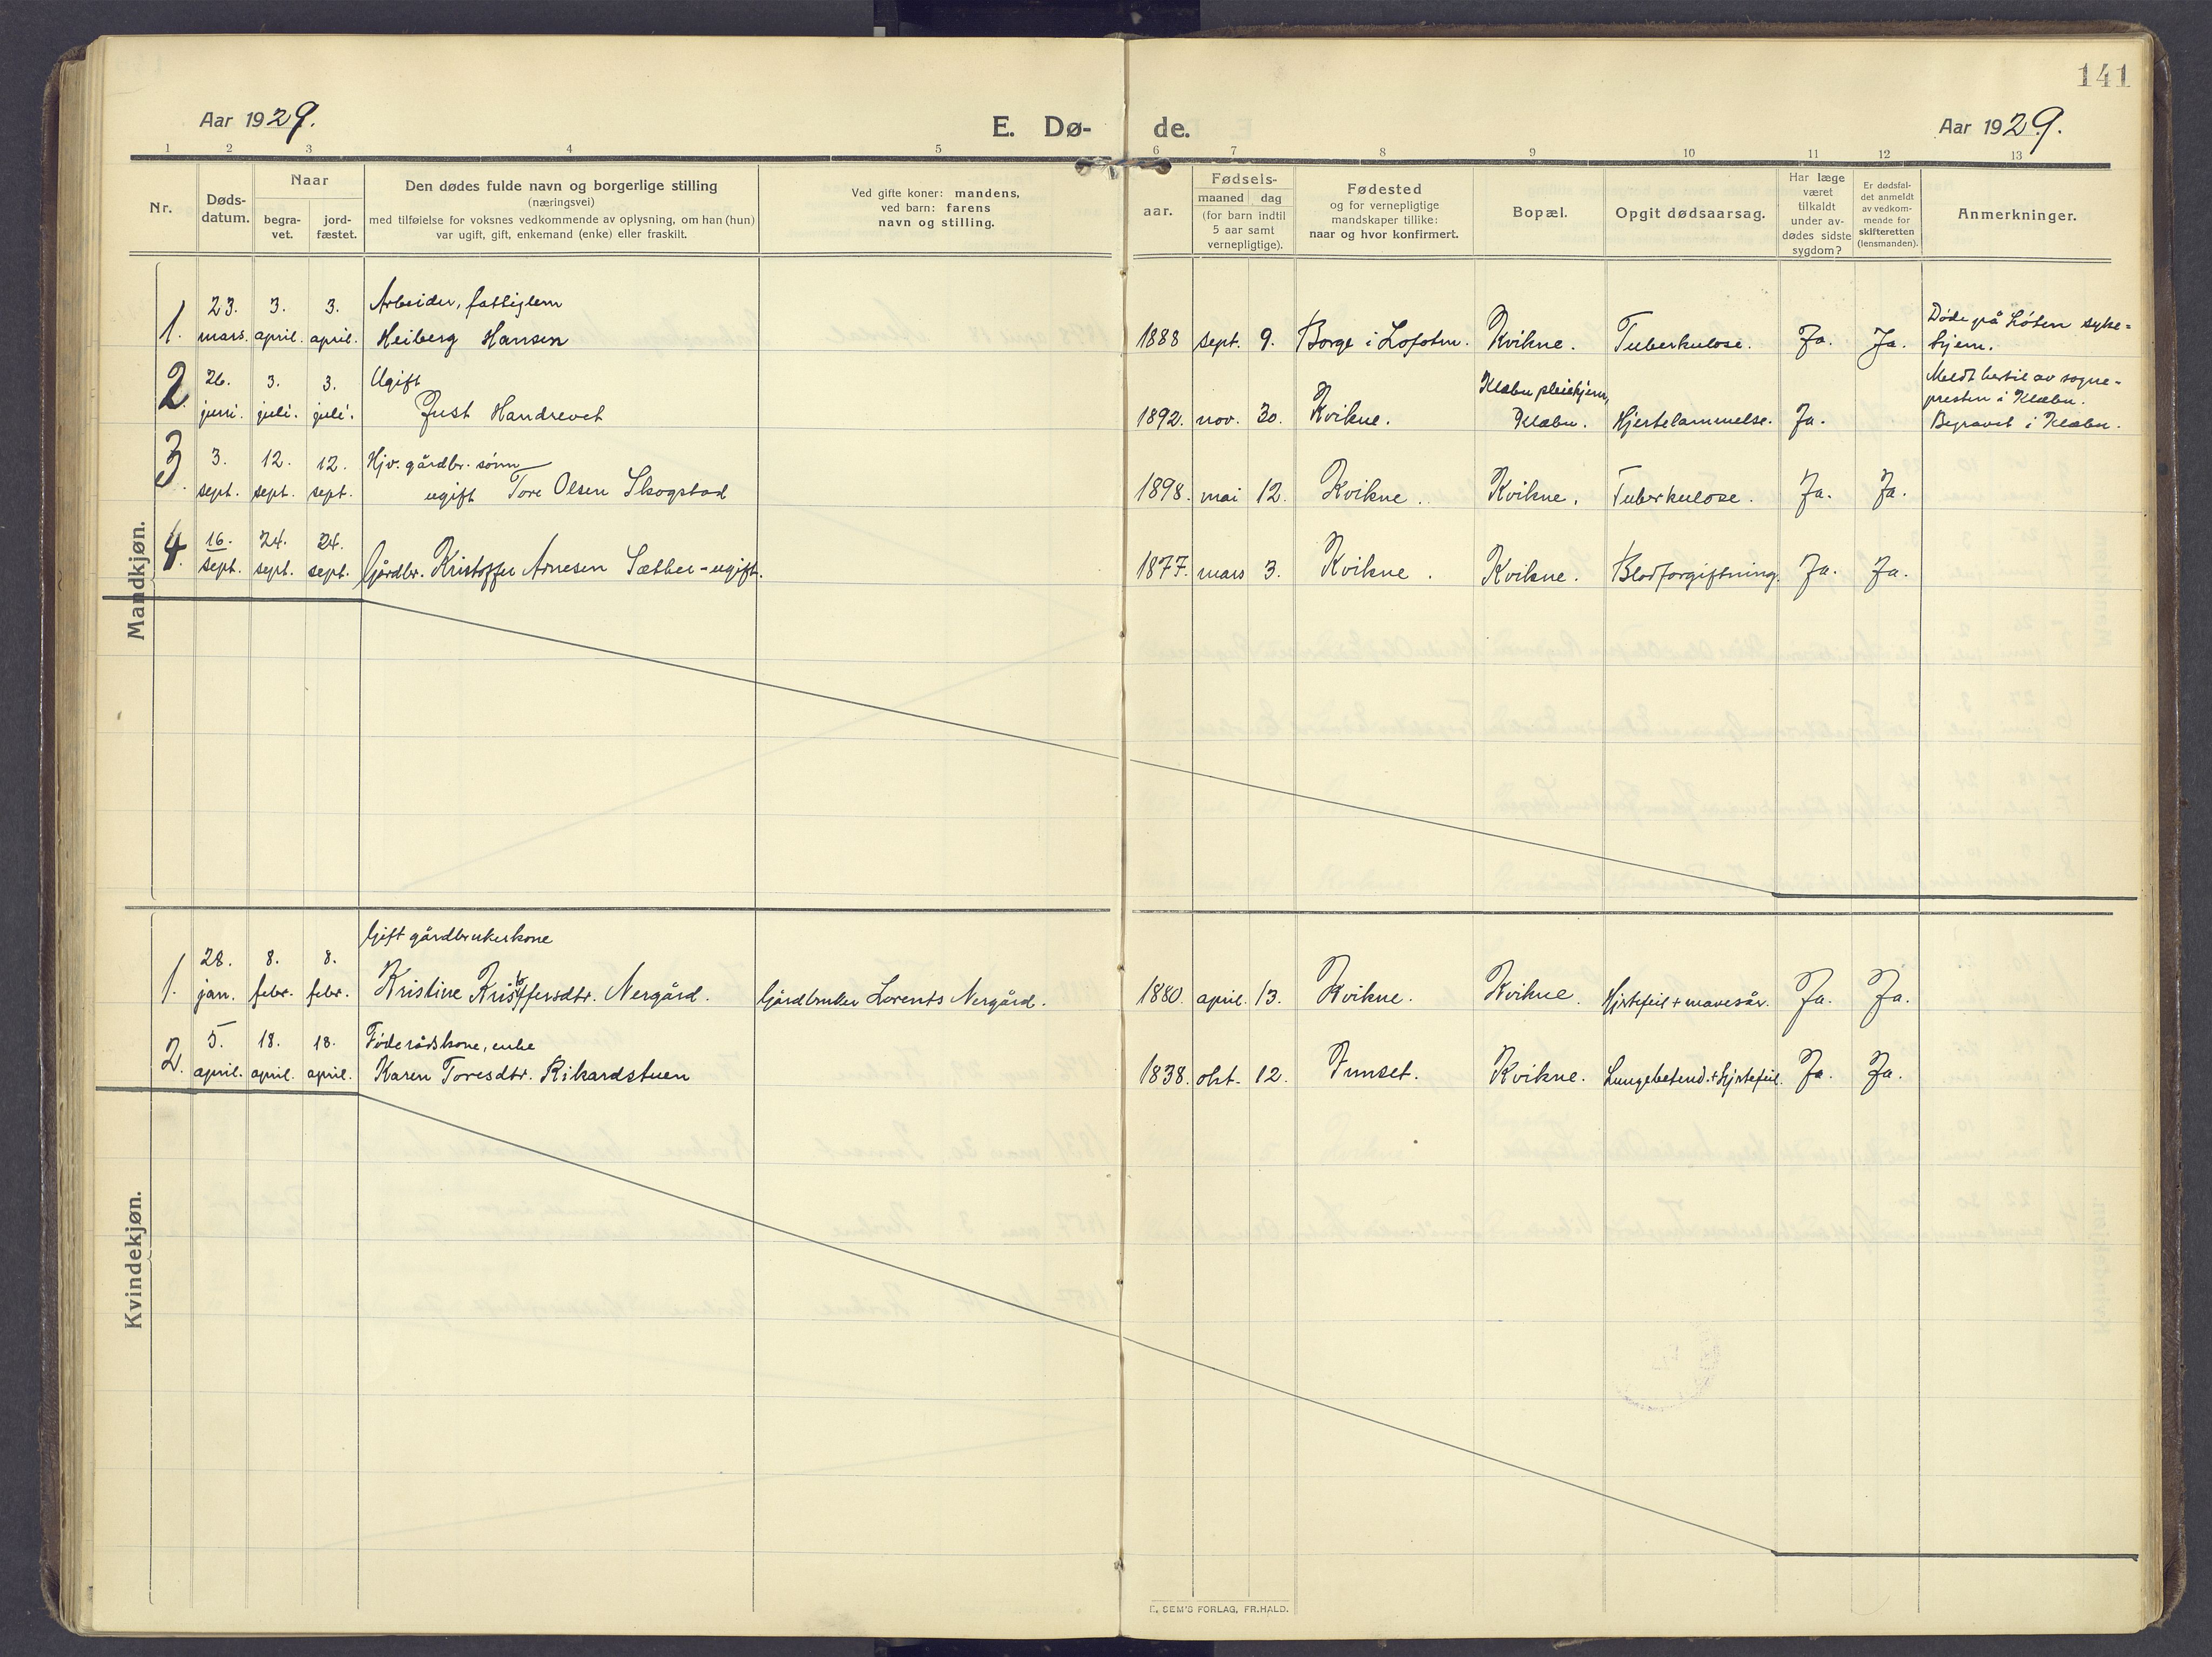 141
Aar 1929.
E. Dø-
de.
Aar 1929.
1 2 3 4 5 6 7 8 9 10 11 12 13
Nr.
Døds-
datum.
Naar
begra-
vet.
jord-
fæstet.
Den dødes fulde navn og borgerlige stilling
(næringsvei)
med tilføielse for voksnes vedkommende av oplysning, om han (hun)
var ugift, gift, enkemand (enke) eller fraskilt.
Ved gifte koner: mandens,
ved barn: farens
navn og stilling.
aar.
Fødsels-
maaned dag
(for barn indtil
5 aar samt
vernepligtige).
Fødested
og for vernepligtige
mandskaper tillike:
naar og hvor konfirmert.
Bopæl.
Opgit dødsaarsag.
Har læge
været
tilkaldt
under av-
dødes sidste
sygdom?
Er dødsfal-
det anmeldt
av vedkom-
mende for
skifteretten
(lensmanden).
Anmerkninger.
Mandkjøn.
23. 3. 3. Arbeider, fattiglem
1. mars. april. april. Heiberg Hansen 1888 sept. 9. Borge i Lofoten. Kvikne. Tuberkulose. Ja. Ja. Døde på Löten syke=
hjem.
26. 3. 3. Ugift
2. juni. juli. juli. Just Handrevet 1892. nov. 30. Kvikne. Klæbu pleiehjem,
Klæbu. Hjertelammelse. Ja. Meldt hertil av sogne-
presten i Klæbu.
Begravet i Klæbu.
3. 12. 12. Hjv. gårdbr. sönn
3. sept. sept. sept. ugift Tore Olsen Skogstad 1898. mai 12. Kvikne. Kvikne. Tuberkulose. Ja. Ja.
16. 24. 24.
4. sept. sept. sept. Gårdbr. Kristoffer Arnesen Sæther - ugift. 1877. mars 3. Kvikne. Kvikne. Blodforgiftning. Ja. Ja.
Kvindekjøn.
28. 8. 8. Gift gårdbrukerkone
1. jan. febr. febr. Kristine Kristoffersdtr. Nergård. Gårdbruker Lorents Nergård. 1880. april. 13. Kvikne. Kvikne. Hjertefeil + mavesår. Ja. Ja.
5. 18. 18. Föderådskone, enke
2. april. april. april. Karen Toresdtr. Rikardstuen 1838. okt. 12. Innset. Kvikne. Lungebetend. + Hjertefeil. Ja. Ja.
E. SEM'S FORLAG, FR.HALD.